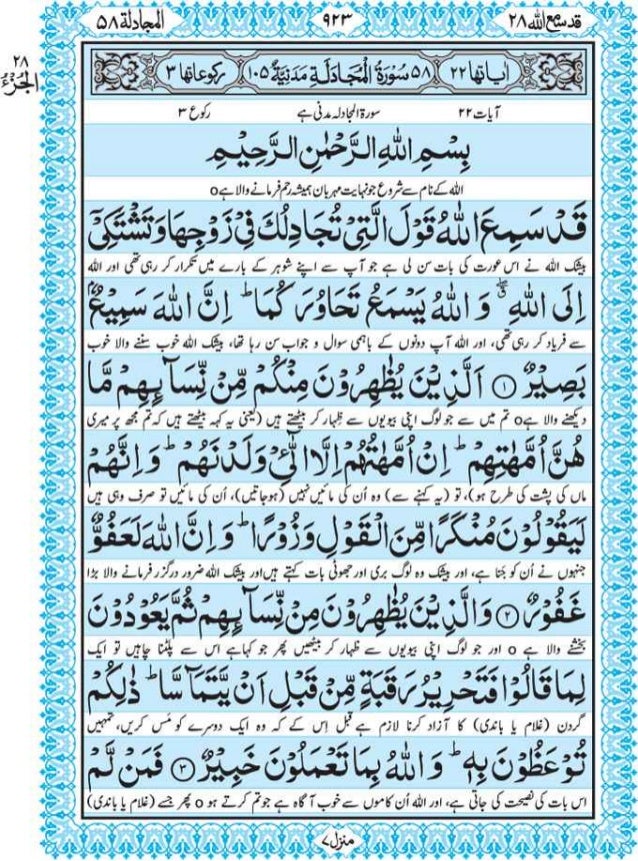 المجادلة ٥٨
٩٢٣
قد سمع الله ٢٨
٢٨
الجزء
اٰیاتھا ٢٢
٥٨ سُوْرَةُ الْمُجَادَلَةِ مَدَنِيَّةٌ ١٠٥
رکوعاتھا ٣
آیات ٢٢
سورۃ المجادلہ مدنی ہے
رکوع ٣
بِسْمِ اللّٰهِ الرَّحْمٰنِ الرَّحِيْمِ
اللہ کے نام سے شروع جو نہایت مہربان ہمیشہ رحم فرمانے والا ہے o
قَدْ سَمِعَ اللّٰهُ قَوْلَ الَّتِيْ تُجَادِلُكَ فِيْ زَوْجِهَا وَ تَشْتَكِيْۤ
بیشک اللہ نے اس عورت کی بات سن لی ہے جو آپ سے اپنے شوہر کے بارے میں تکرار کر رہی تھی اور اللہ
اِلَى اللّٰهِ ۖۗ وَ اللّٰهُ يَسْمَعُ تَحَاوُرَكُمَا ؕ اِنَّ اللّٰهَ سَمِيْعٌۢ
سے فریاد کر رہی تھی، اور اللہ آپ دونوں کے باہمی سوال و جواب سن رہا تھا، بیشک اللہ خوب سننے والا خوب
بَصِيْرٌ ۝١ اَلَّذِيْنَ يُظٰهِرُوْنَ مِنْكُمْ مِّنْ نِّسَآىِٕهِمْ مَّا
دیکھنے والا ہے o تم میں سے جو لوگ اپنی بیویوں سے ظہار کر بیٹھتے ہیں (یعنی یہ کہہ بیٹھتے ہیں کہ تم مجھ پر میری
هُنَّ اُمَّهٰتِهِمْ ؕ اِنْ اُمَّهٰتُهُمْ اِلَّا الّٰٓـِٔيْ وَلَدْنَهُمْ ؕ وَ اِنَّهُمْ
ماں کی پشت کی طرح ہو)، تو (یہ کہنے سے) وہ اُن کی مائیں نہیں (ہوجاتیں)، اُن کی مائیں تو صرف وہی ہیں
لَيَقُوْلُوْنَ مُنْكَرًا مِّنَ الْقَوْلِ وَ زُوْرًا ؕ وَ اِنَّ اللّٰهَ لَعَفُوٌّ
جنہوں نے اُن کو جنا ہے، اور بیشک وہ لوگ بری اور جھوٹی بات کہتے ہیں اور بیشک اللہ ضرور درگزر فرمانے والا بڑا
غَفُوْرٌ ۝٢ وَ الَّذِيْنَ يُظٰهِرُوْنَ مِنْ نِّسَآىِٕهِمْ ثُمَّ يَعُوْدُوْنَ
بخشنے والا ہے o اور جو لوگ اپنی بیویوں سے ظہار کر بیٹھیں پھر جو کہا ہے اس سے پلٹنا چاہیں تو ایک
لِمَا قَالُوْا فَتَحْرِيْرُ رَقَبَةٍ مِّنْ قَبْلِ اَنْ يَّتَمَآسَّا ؕ ذٰلِكُمْ
گردن (غلام یا باندی) کا آزاد کرنا لازم ہے قبل اِس کے کہ وہ ایک دوسرے کو مَس کریں، تمہیں
تُوْعَظُوْنَ بِهٖ ؕ وَ اللّٰهُ بِمَا تَعْمَلُوْنَ خَبِيْرٌ ۝٣ فَمَنْ لَّمْ
اس بات کی نصیحت کی جاتی ہے، اور اللہ اُن کاموں سے خوب آگاہ ہے جو تم کرتے ہو o پھر جسے (غلام یا باندی)
منزل ٧